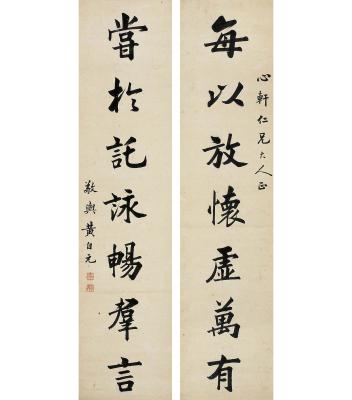 每以放懷虛萬有
心軒仁兄大人正
嘗於託詠暢羣言
敬輿黃自元